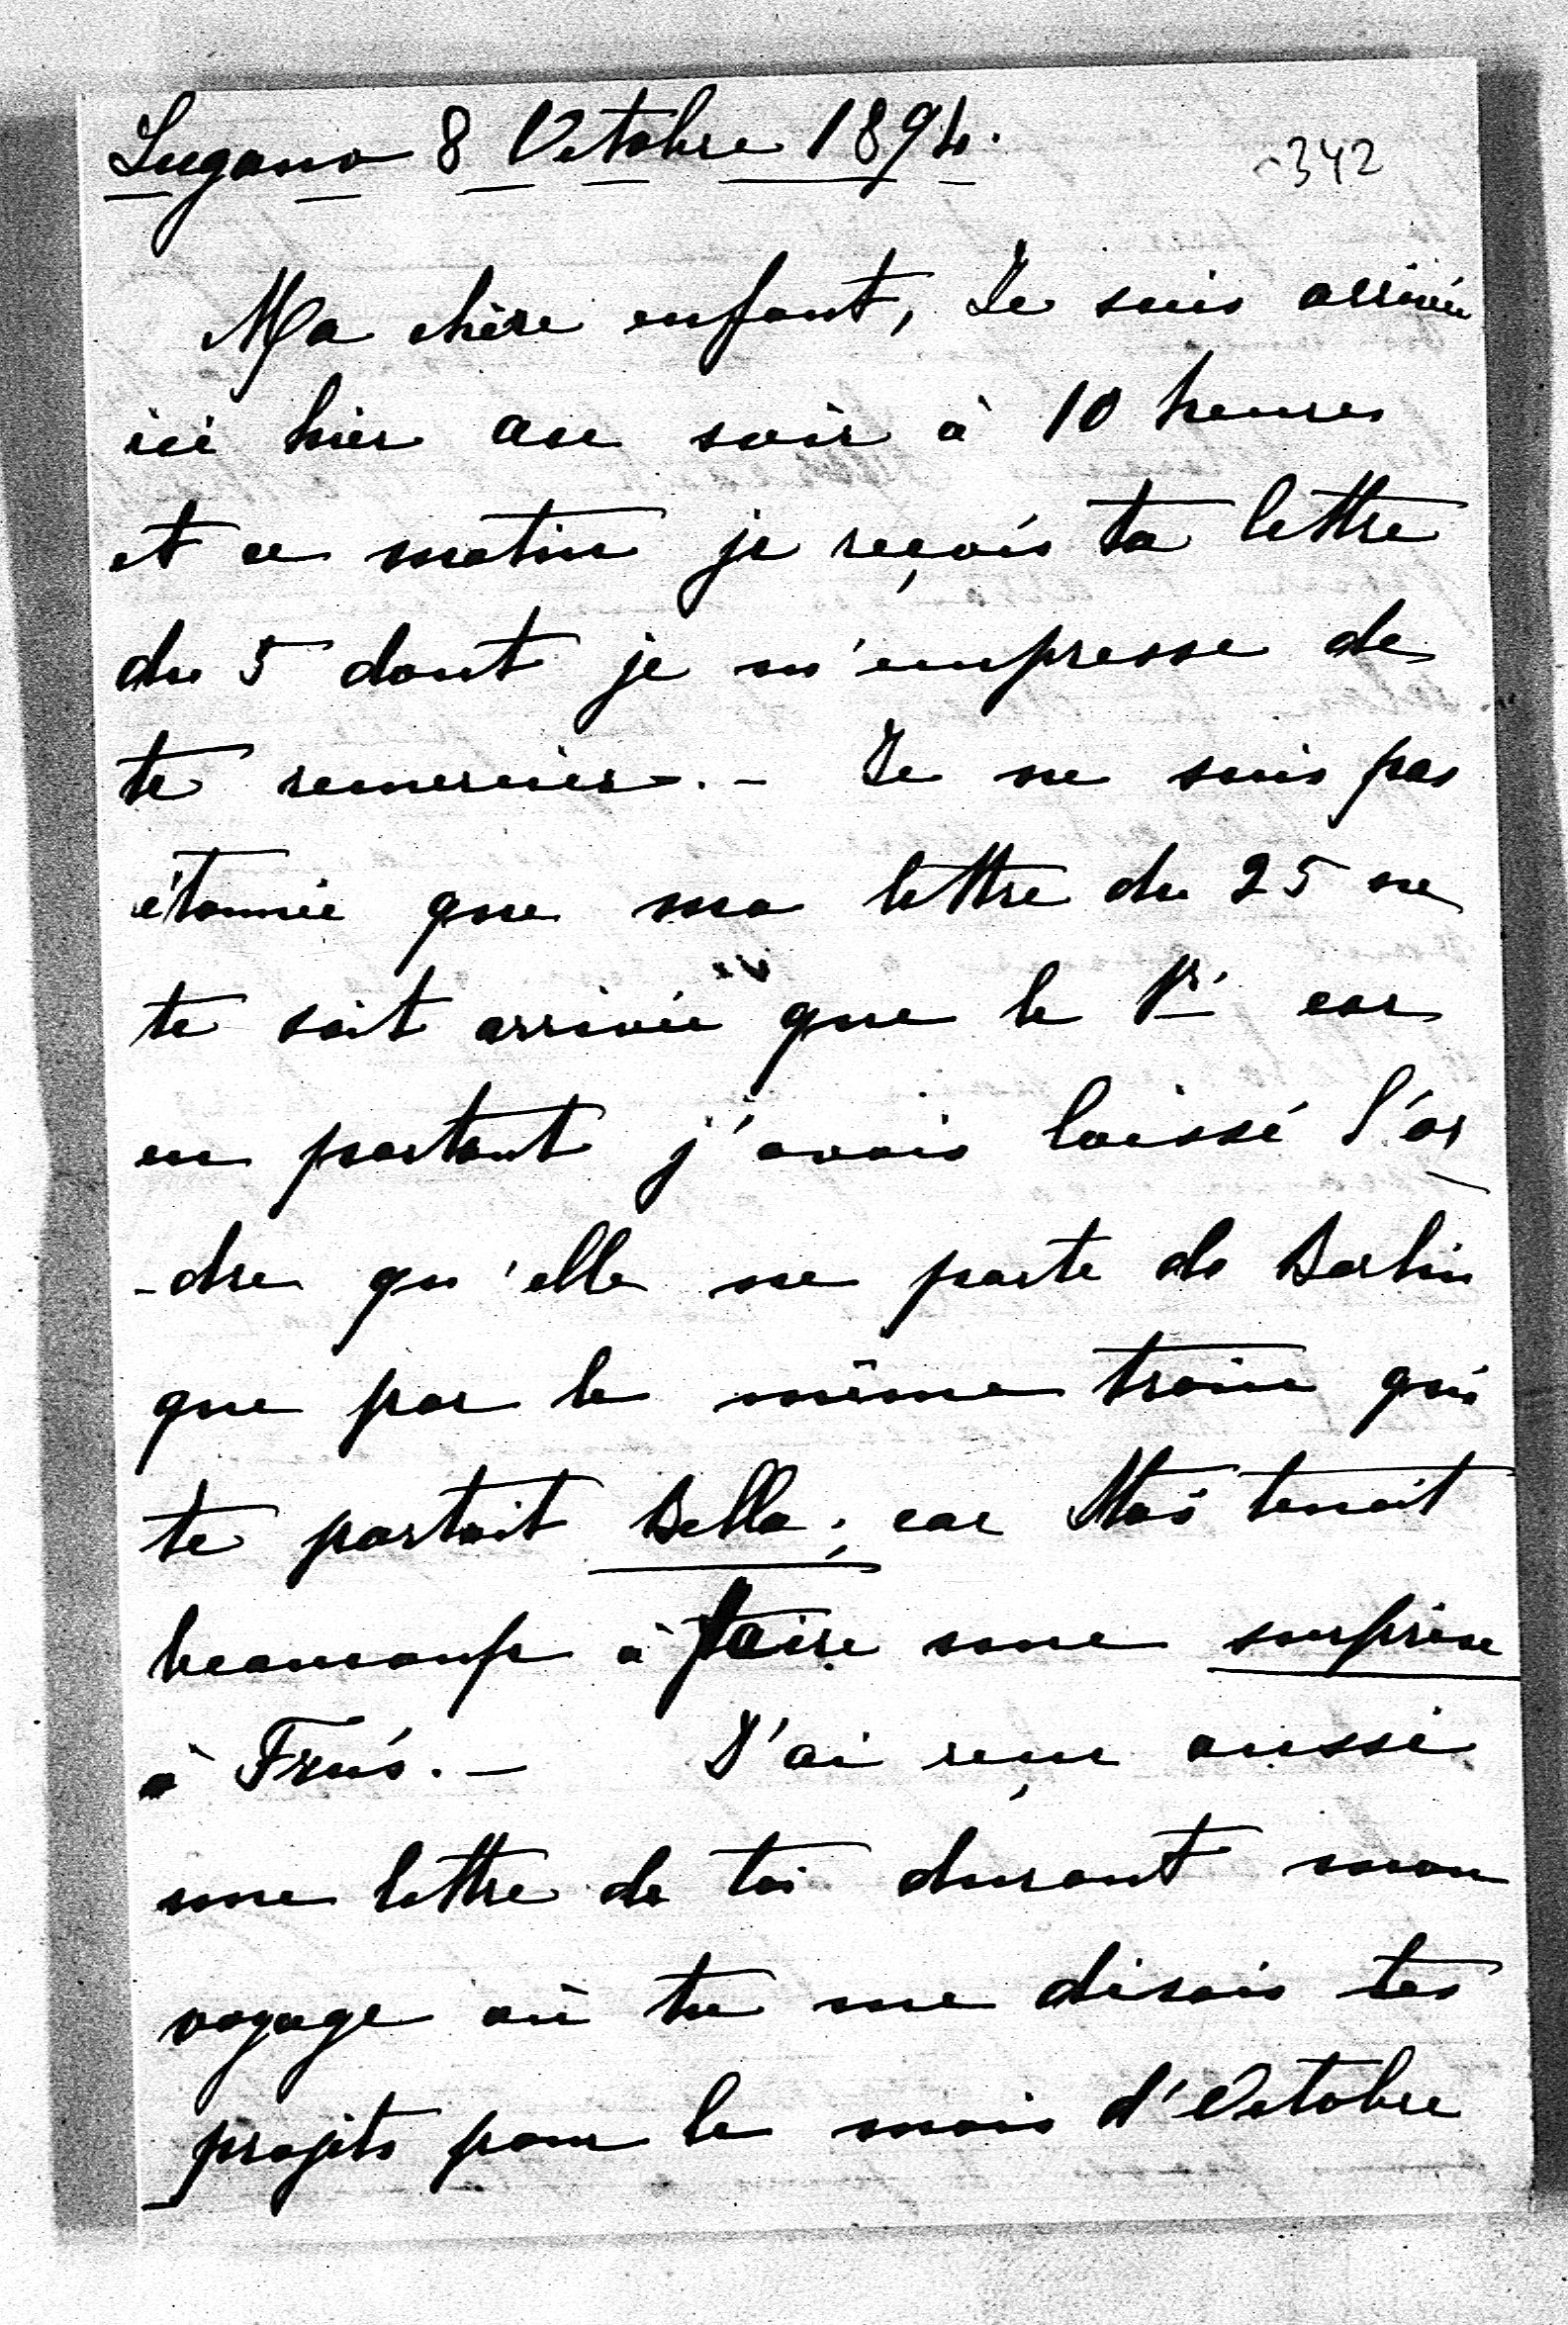 Lugano 8 Octobre 1894.
342
Ma chère enfant, Je suis arrivée
ici hier au soir à 10 heures
et ce matin je reçois ta lettre
du 5 dont je m'empresse de
te remercier. - Je ne suis pas
étonnée que ma lettre du 25 ne
te soit arrivée que le 1r. car
en partant j'avais laissé l'or
-dre qu'elle ne parte de Berlin
que par le même train qui
te portait Bella; car Stas tenait
beaucoup à faire une surprise
à Fruś. - J'ai reçu aussi
une lettre de toi durant mon
voyage où tu me disais tes
projets pour le mois d'Octobre